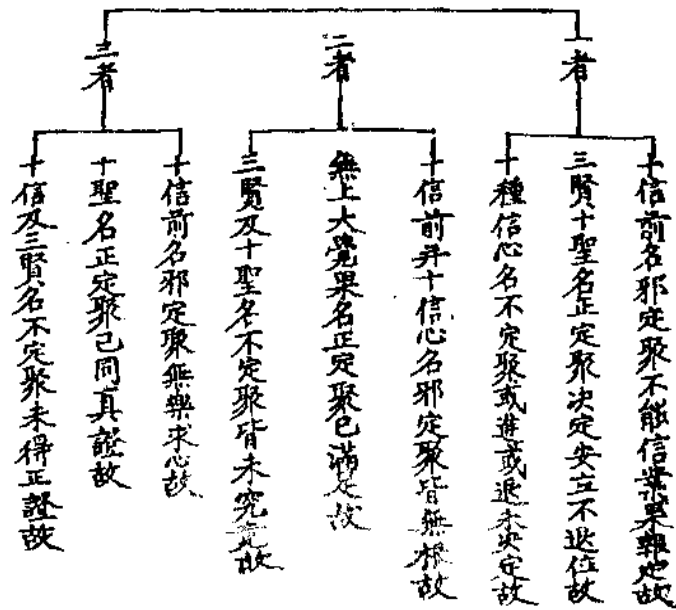 一者
十信前名邪定聚不能信業果報地故
三賢十聖名正定聚決定安立不退位故
十種信心名不定聚或進或退未決定故
二者
十信前并十信心名邪定聚皆無根故
無上大覺果名正定聚已滿足故
三賢及十聖名不定聚皆未究竟故
三者
十信前名邪定聚無樂求心故
十聖名正定聚已同真證故
十信及三賢名不定聚未得正證故